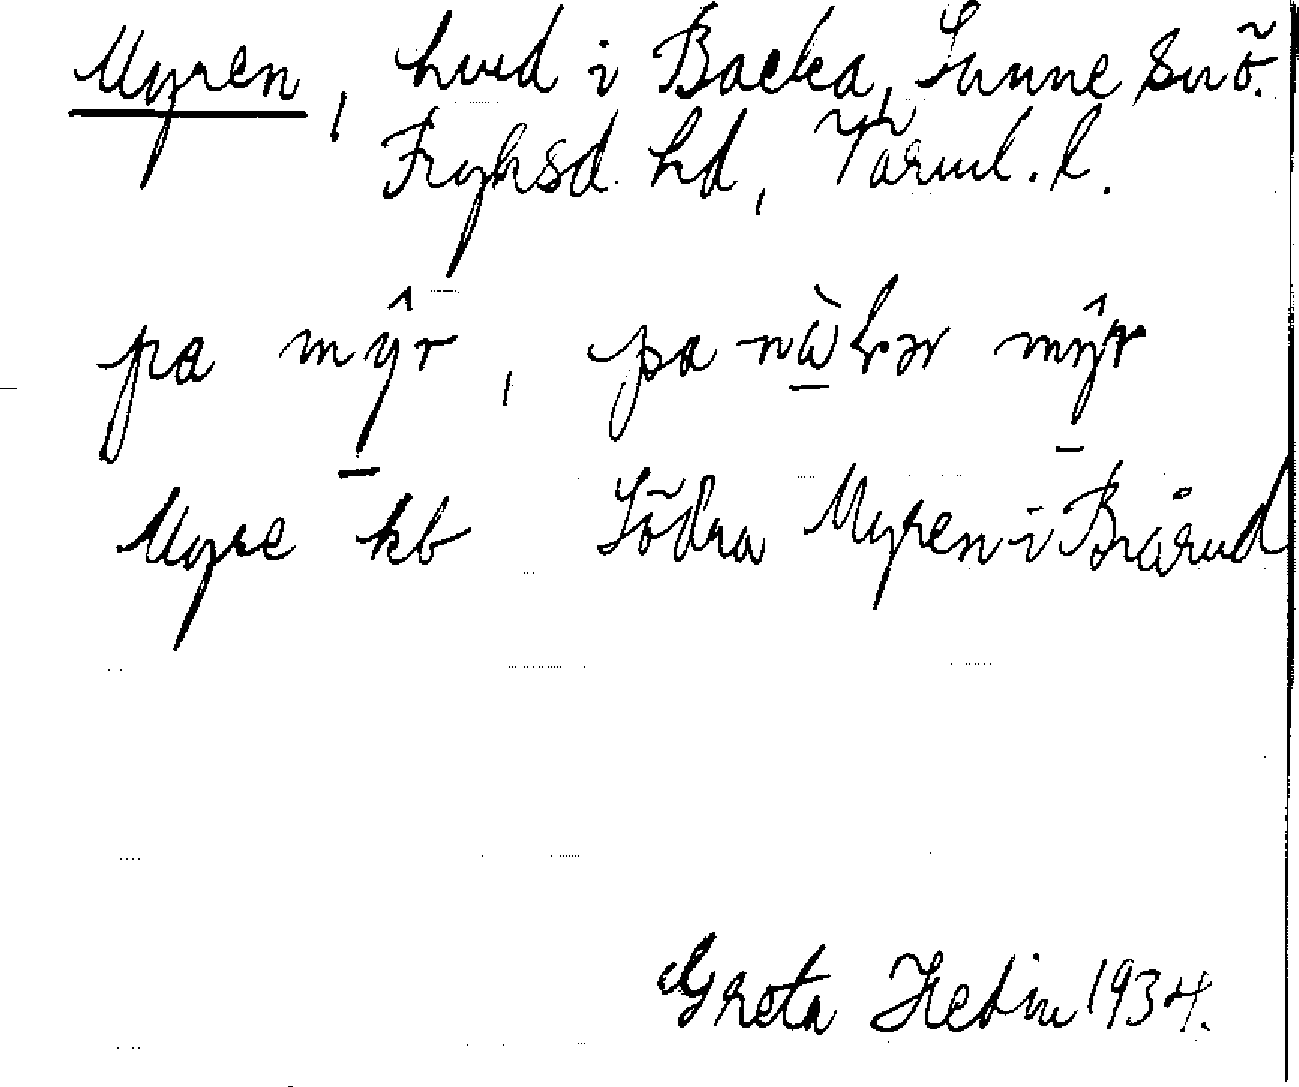 Myren, hmd i Backa, Sunne snö.
Fryksd. hd, Värml. l.
pa mŷr, pa
Myre kb Södra Myren i Brårud
Greta Hedin 1934.